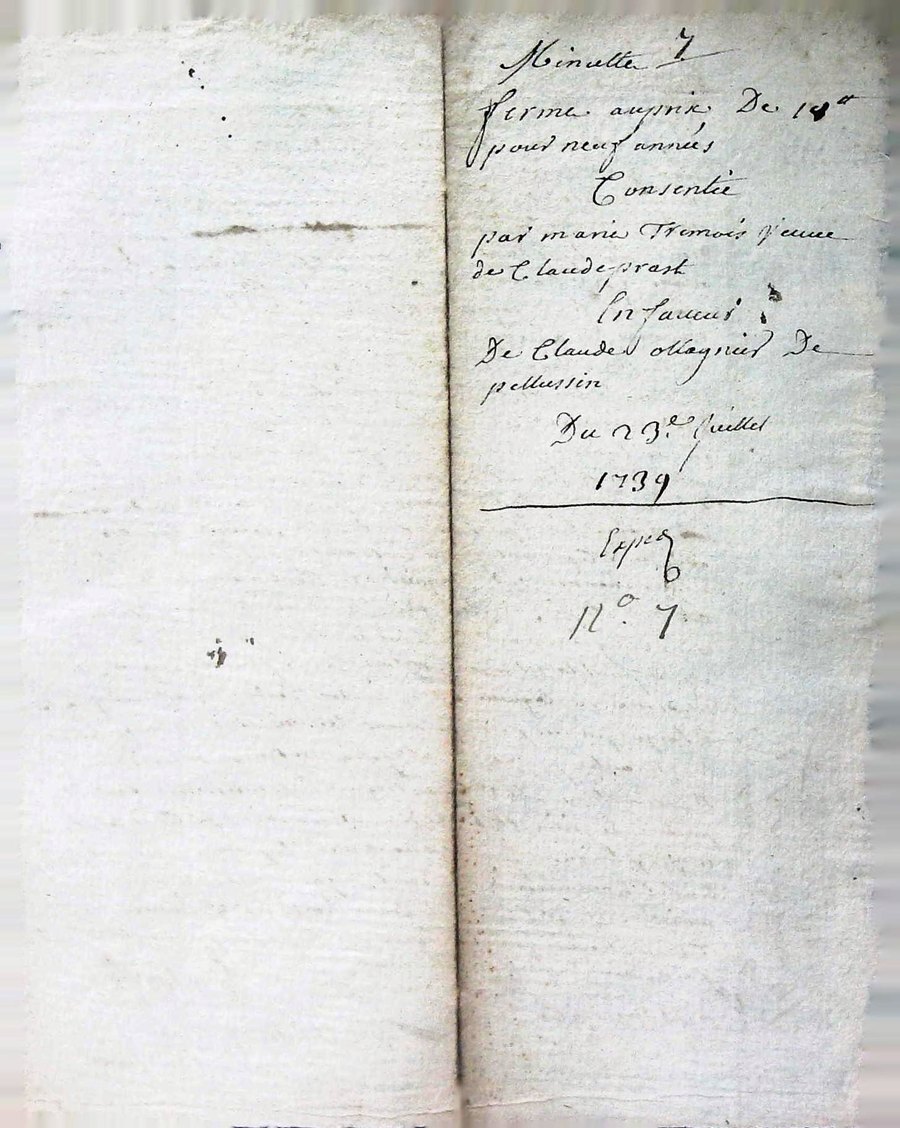 Minutte 7
ferme auprix De 18tt
pour neuf années
Consentie
par marie Tremois veuve
de Claude prast
En faveur
De Claude Magnier De
pellussin
Du 23e Juillet
1739
Expée
No. 7